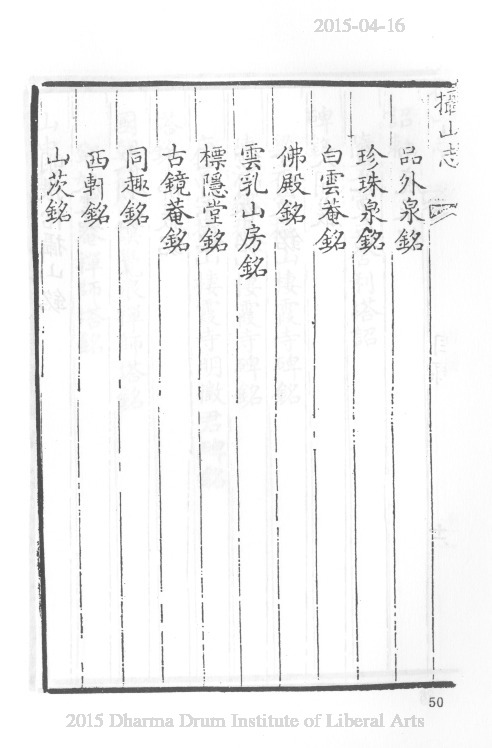 2015-04-16
攝山志
品外泉銘
珍珠泉銘
白雲菴銘
佛殿銘
雲乳山房銘
標隱堂銘
古鏡菴銘
同趣銘
西軒銘
山茨銘
50
2015 Dharma Drum Institute of Liberal Arts